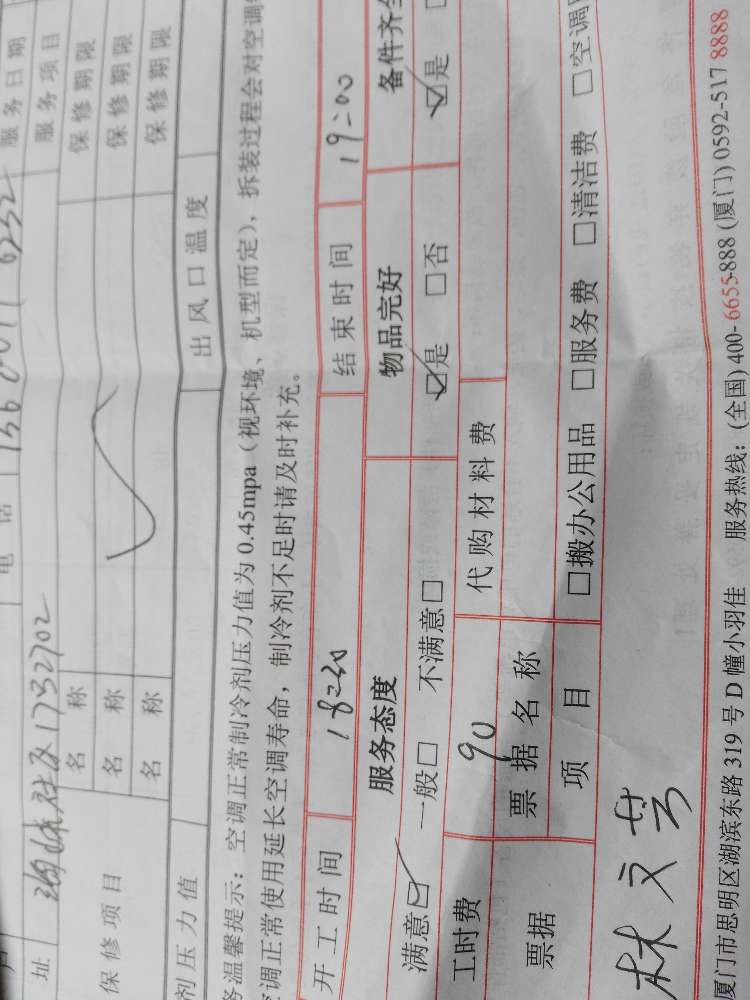 电话 服务日期
址 服务项目
保修项目 名称 保修期限
名称 保修期限
名称 保修期限
剂压力值 出风口温度
务温馨提示：空调正常制冷剂压力值为0.45mpa（视环境、机型而定），拆装过程会对空调
调正常使用延长空调寿命，制冷剂不足时请及时补充。
开工时间 18:20 结束时间 19:00
服务态度 物品完好 备件齐全
满意☑ 一般□ 不满意□ ☑是 □否 ☑是
工时费 90 代购材料费
票据 票据名称
项目 □搬办公用品 □服务费 □清洁费 □空调
林文芸
厦门市思明区湖滨东路319号D幢小羽佳 服务热线：(全国) 400-6655-888 (厦门) 0592-517 8888